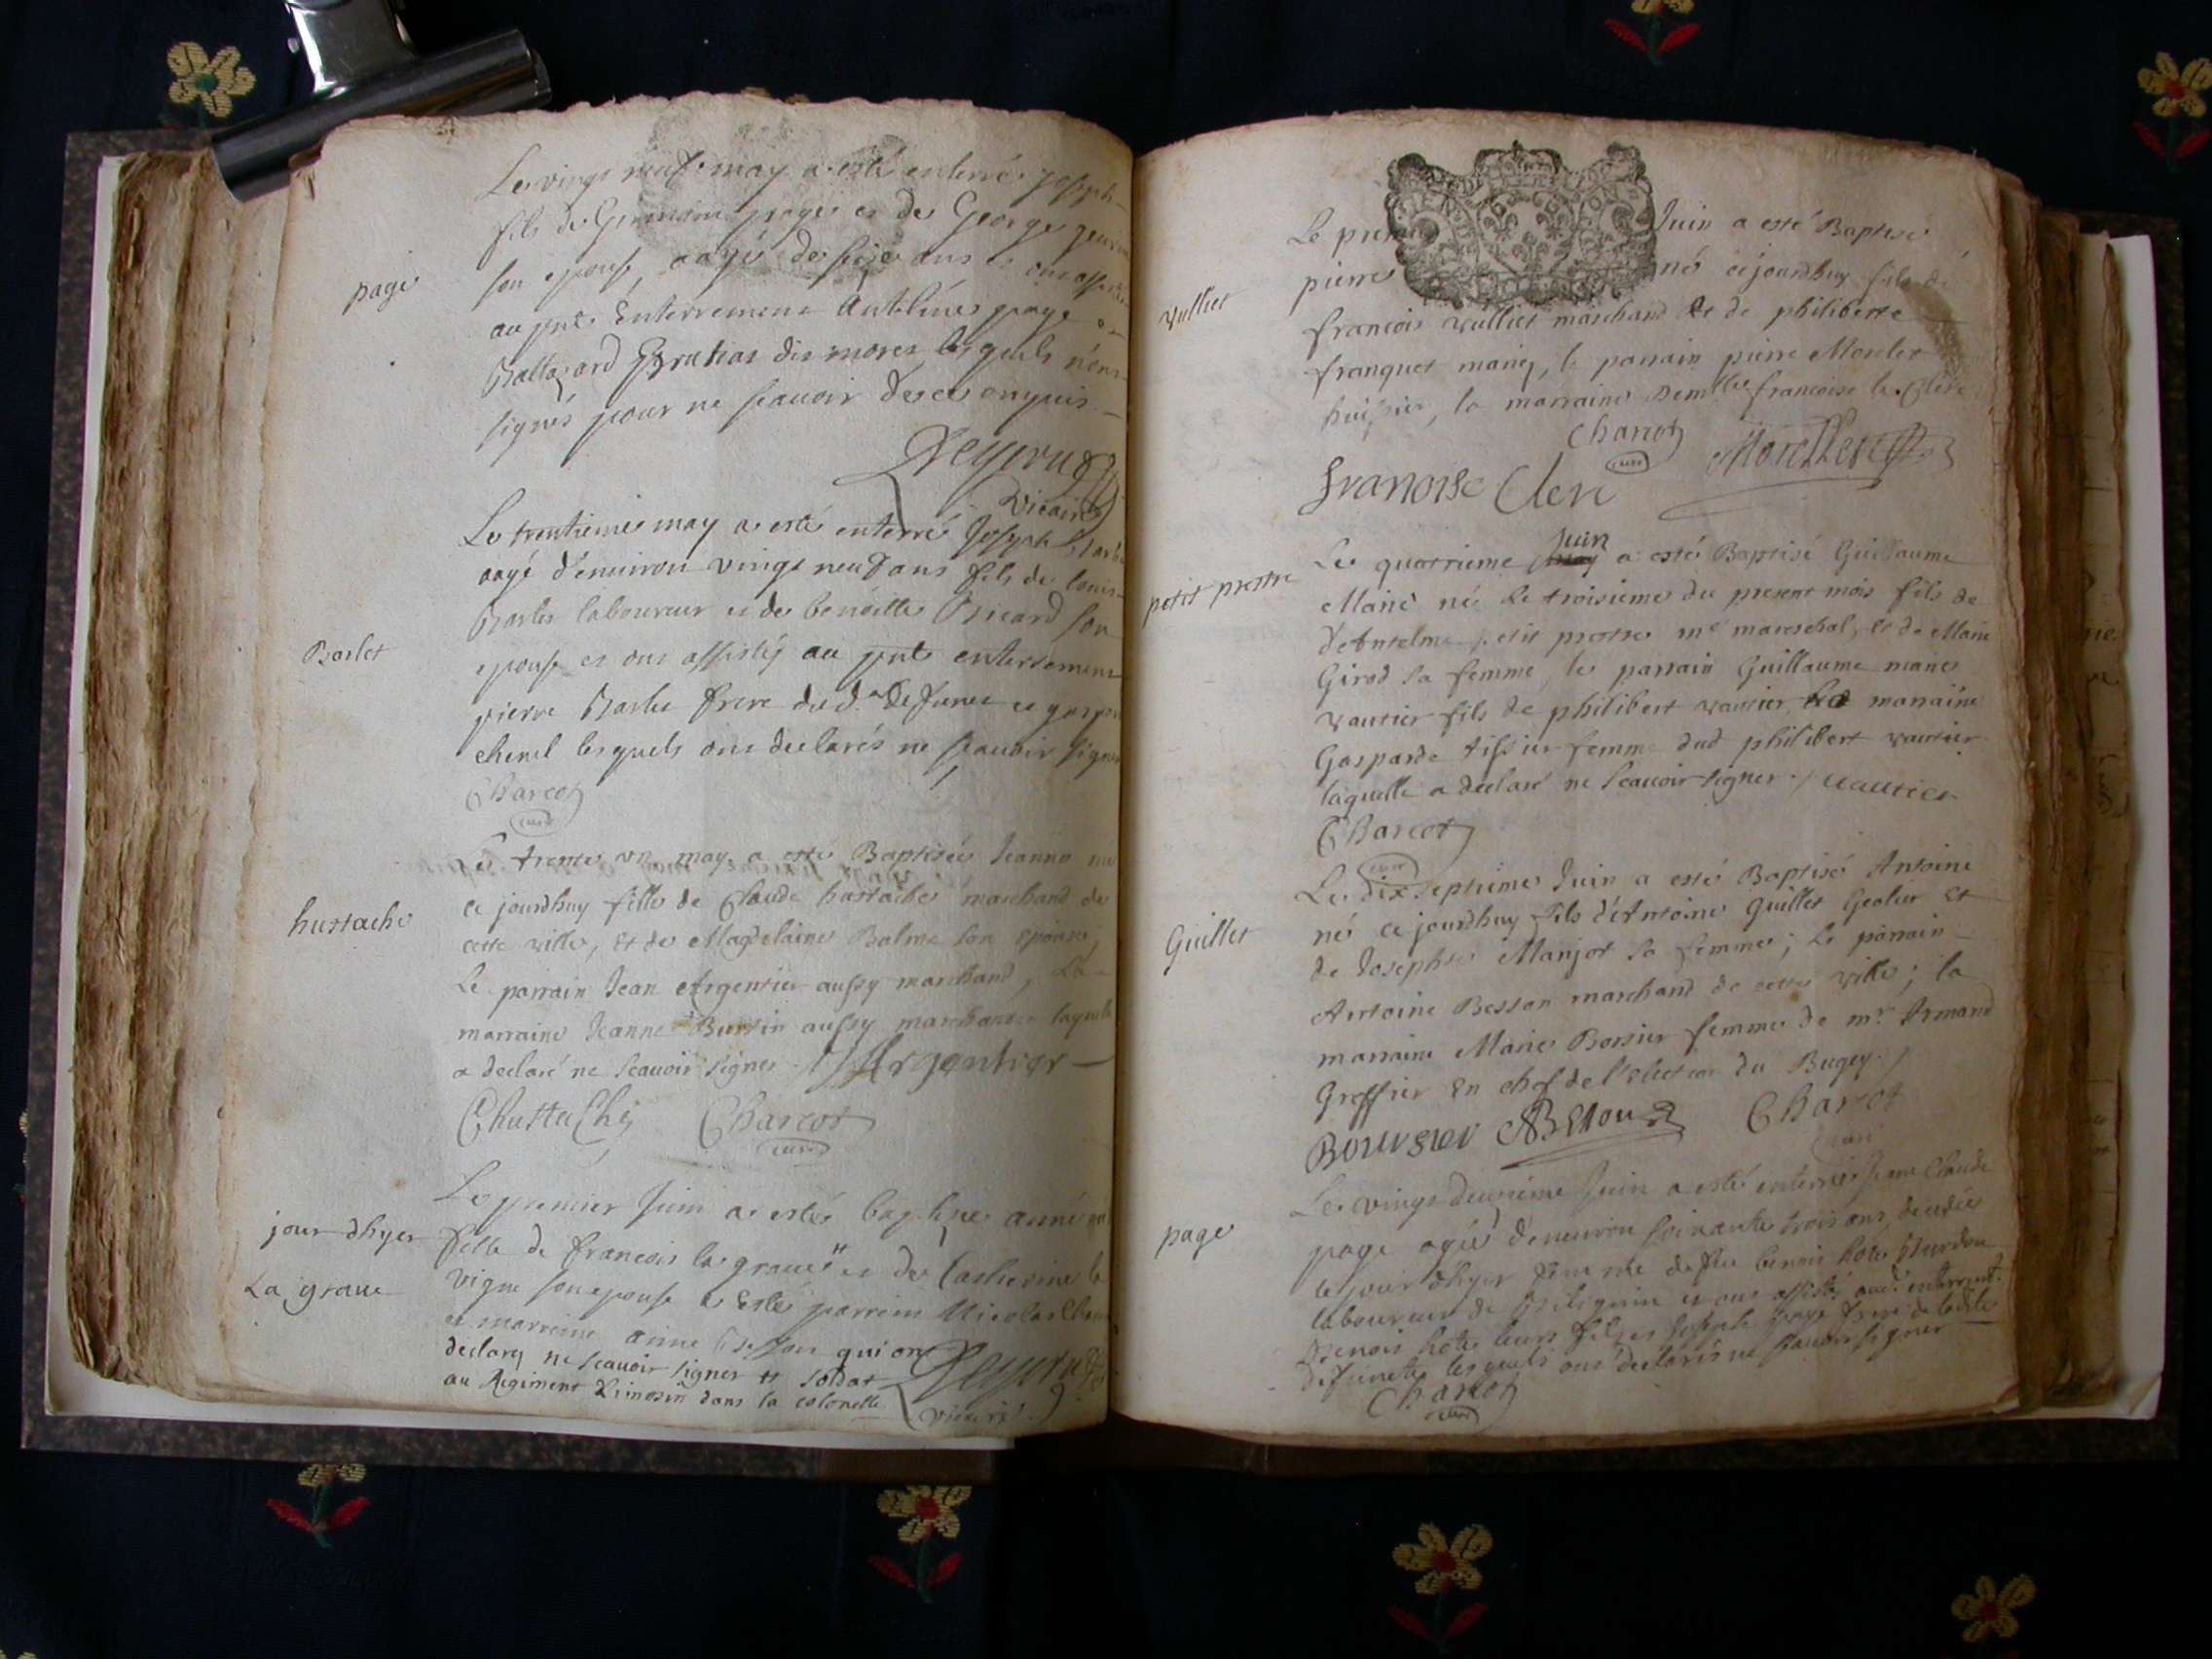 Le vingt neuf may a esté enterré Joseph
fils de Germain page et de George
page
son epouse, aagé de seize ans et ont assisté
au pnt Enterrement Anthelme page et
Baltazard des mores lesquels n'ont
signés pour ne scauoir de ce enquis
vicaire
Le trentieme may a esté enterré Joseph Barlet
aagé d'enuiron vingt neuf ans fils de louis
Barlet laboureur et de benoitte Bricard son
Barlet
epouse et ont assistés au pnt enterrement
pierre Barlet frere dud. Defunct et gaspard
lesquels ont declarés ne scauoir signer
Charcot
curé
Le trente un may a esté Baptisée Jeanne née
ce jourdhuy fille de Claude hustache marchand de
hustache
cette ville, et de Magdelaine Balme son epouse;
Le parrain Jean Argentier aussy marchand, La
marraine Jeanne Burtin aussy marchande laquelle
a declaré ne scauoir signer. Argentier
Chustache Charcot
curé
Le premier Juin a esté baptisée anne née
jour dhyer
fille de francois la graue # et de Catherine la
La graue
vigne son epouse a esté parrein Nicolas
et marreine anne qui ont
declarés ne scauoir signer # soldat
au Regiment Limosin dans la colonelle
vicaire
Le premier Juin a esté Baptisé
pierre né cejourdhuy fils de
vulliet
francois vulliet marchand et de philiberte
franquet mariés, le parrain pierre Morlet
huissier, la marraine Demlle francoise le Clerc
Charcot
curé
francoise Clerc
juin
Le quatrieme may a esté Baptisé Guillaume
petit prestre
Marie né Le troisieme du present mois fils de
d'Antelme petit prestre me mareschal, et de Marie
Girod sa femme, le parrain Guillaume marie
vautier fils de philibert vautier la marraine
Gasparde tissier femme dud philibert vautier
laquelle a declaré ne scauoir signer. / vautier
Charcot
curé
Le dix septieme Juin a esté Baptisé Antoine
Guillet
né ce jourdhuy fils d'Antoine Guillet Geolier Et
de Josephte Manjot sa femme; Le parrain
Antoine Besson marchand de cette ville; la
marraine Marie Borsier femme de mr. Armand
Greffier En chef de l'election du Bugey. /
Boursier ABeson Charcot
curé
Le vingt deuxieme Juin a esté enterrée Jeanne Claude
page
page agée d'enuiron soixante trois ans, decedée
le jour dhyer femme de feu benoit hote
laboureur de et ont assistés aud. enterremt.
Benoit hote leurs fils et Joseph page frere de ladite
defuncte lesquels ont declarés ne scauoir signer
Charcot
curé